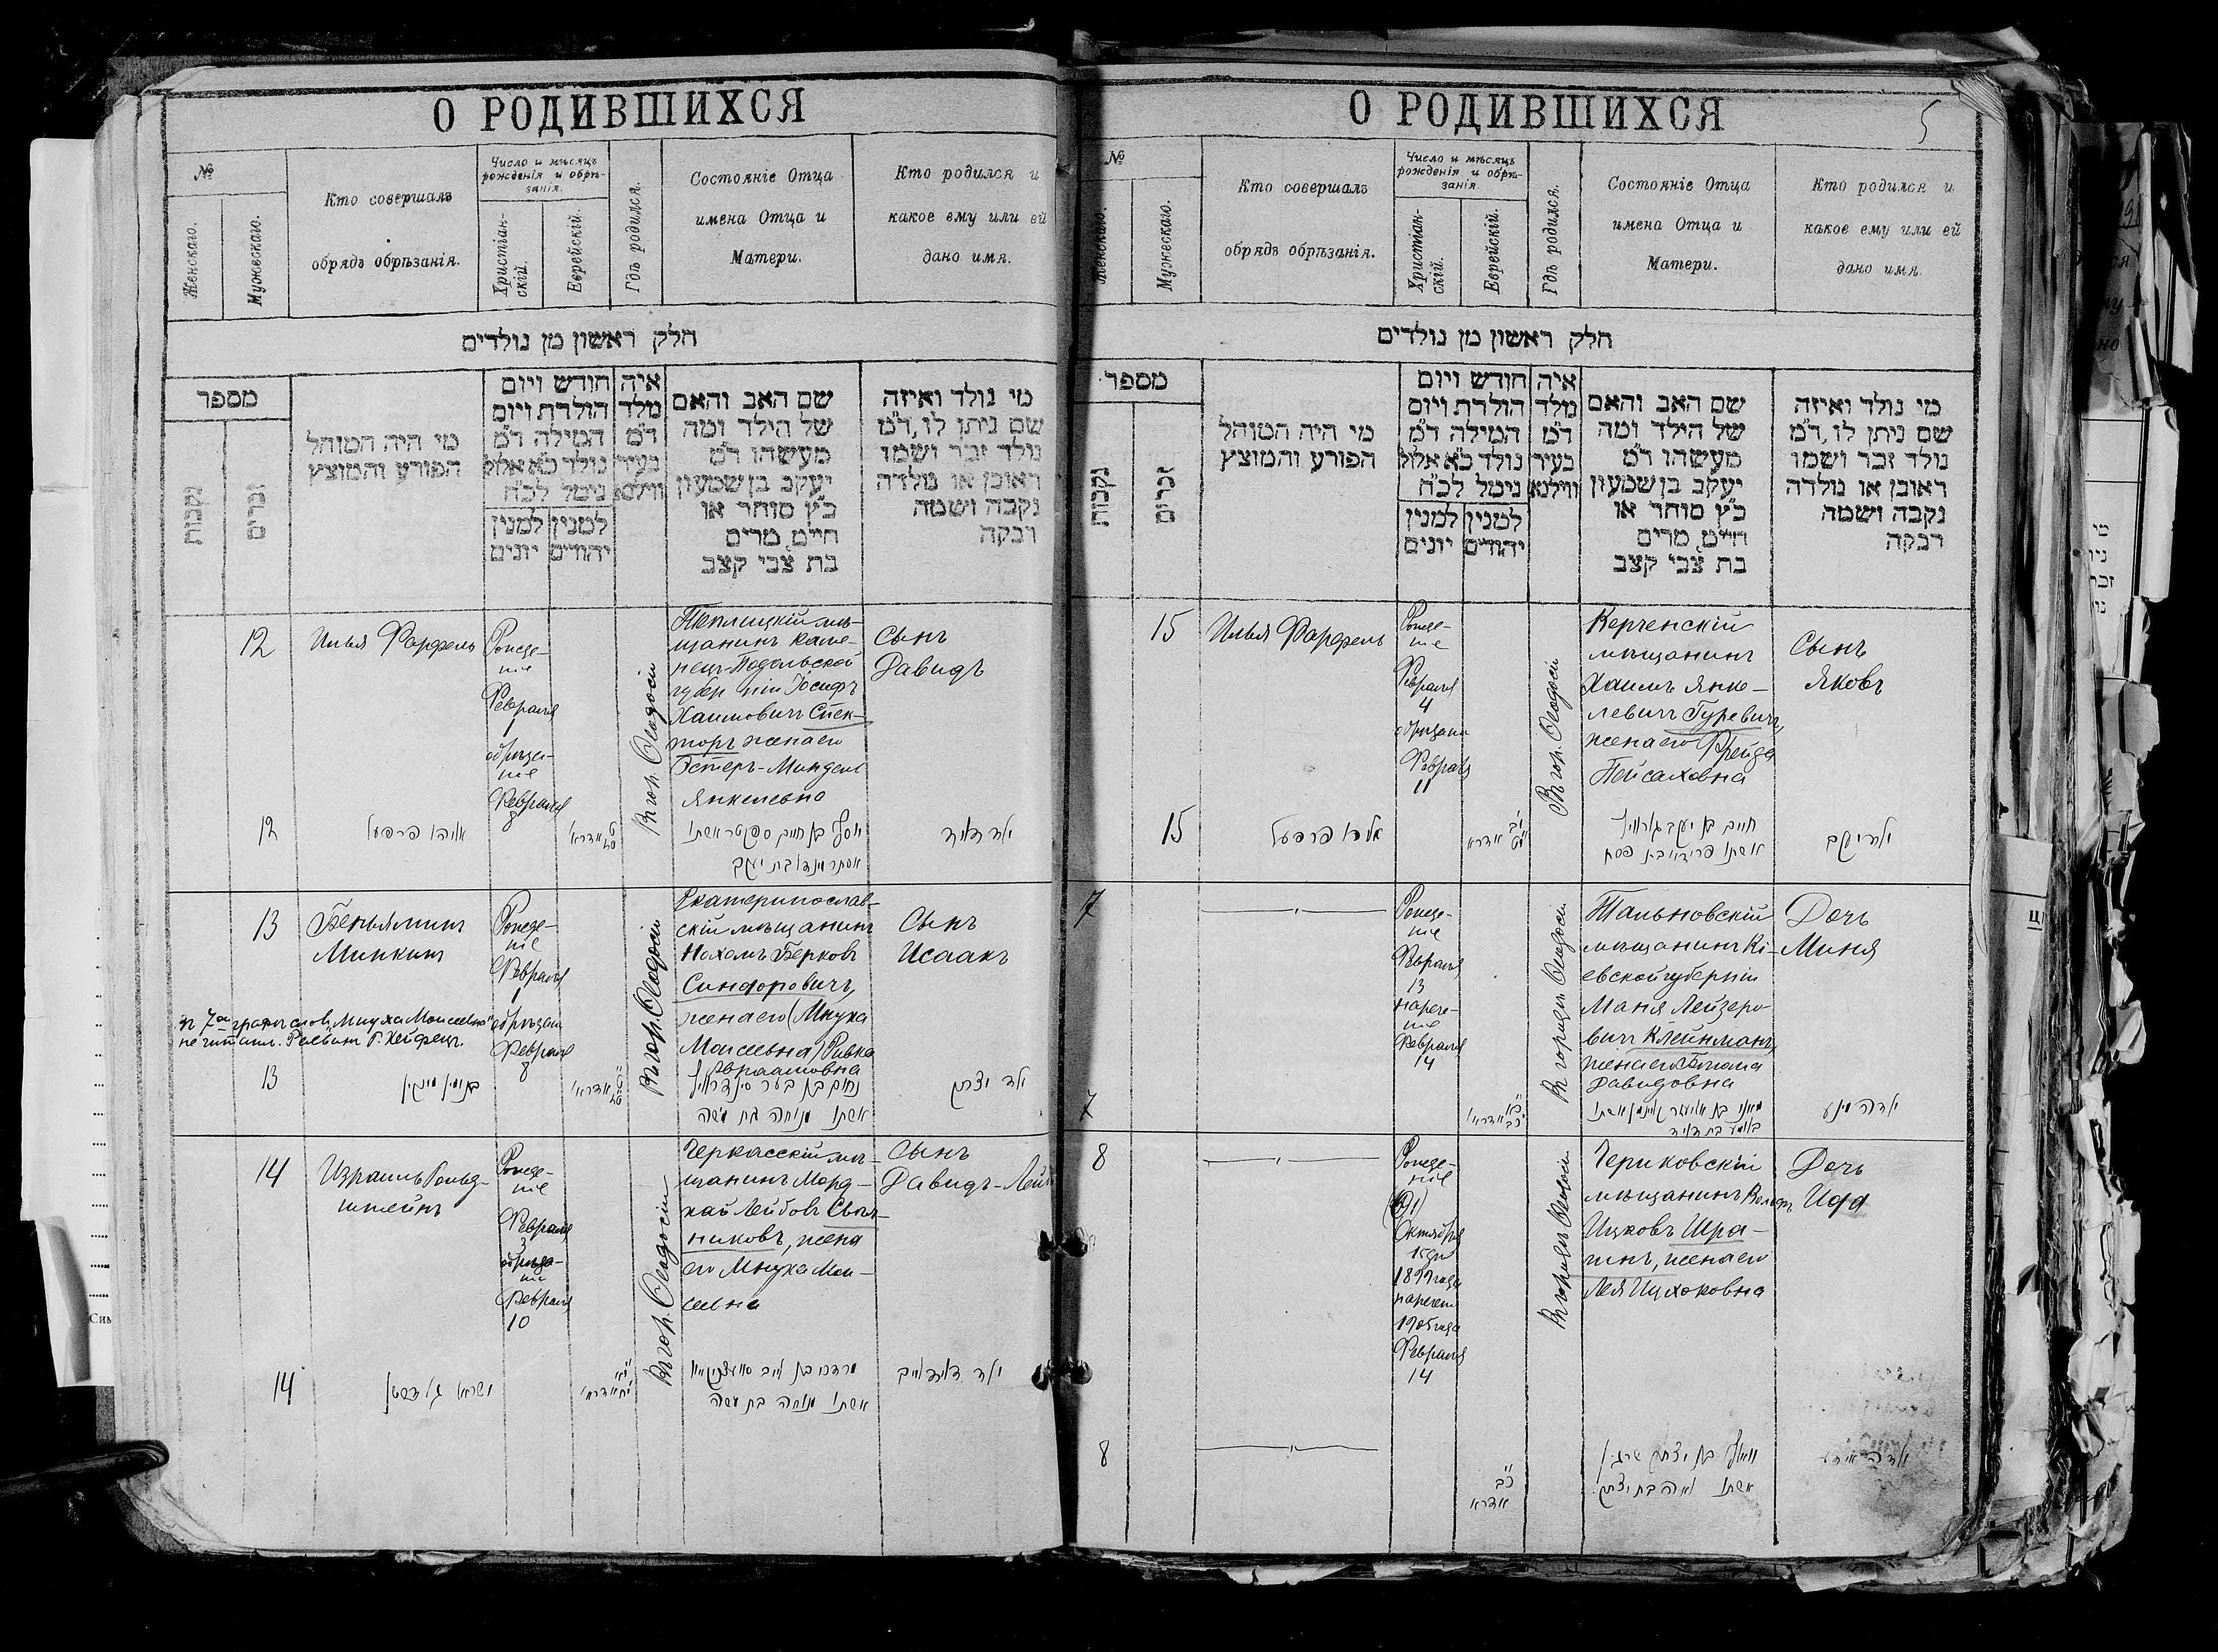 О РОДИВШИХСЯ
№
Женскаго.
Мужескаго.
Кто совершалъ
обрядъ обрѣзанія.
Число и мѣсяцъ
рожденія и обрѣ-
занія.
Христіан-
скій.
Еврейскій.
Гдѣ родился.
Состояніе Отца
имена Отца и
Матери.
Кто родился и
какое ему или ей
дано имя.
חלק ראשון מן נולדים
מספר
נקבות
זכרים
מי היה המוהל
הפורע והמוצץ
חודש ויום
הולדת ויום
המילה ד״מ
נולד כ״א אלול
נימל לכ״ח
למנין למנין
יהודים יונים
איה
מלד
ד״מ
בעיר
ווילנא
שם האב והאם
של הילד ומה
מעשהו ד״מ
יעקב בן שמעון
כ״ץ סוחר או
חייט, מרים
בת צבי קצב
מי נולד ואיזה
שם ניתן לו, ד״מ
נולד זכר ושמו
ראובן או נולדה
נקבה ושמה
רבקה
12
Илья Фарфель
Рожде-
ніе
Февраля
1
обрѣза-
ніе
Февраля
8
Въ гор. Ѳеодосіи
Теплицкій мѣ-
щанинъ Каме-
нецъ-Подольской
губерніи Іосифъ
Хаимовичъ Спек-
торъ жена его
Эстеръ-Миндель
Янкелевна
Сынъ
Давидъ
12
אליהו פרפעל
יוסף בן חיים ספקטר אשתו
אסתר מינדל בת יעקב
ילד דוד
13
Беньяминъ
Минкинъ
Рожде-
ніе
Февраля
1
обрѣзаніе
Февраля
8
Въ гор. Ѳеодосіи
Екатеринослав-
скій мѣщанинъ
Нохомъ Берковъ
Синдоровичъ,
жена его (Мнуха
Моисеевна) Ривка
Авраамовна
Сынъ
Исаакъ
въ 7ой графѣ слов. „Мнуха Моисеевна“
не читать. Раввинъ Г. Хейфецъ.
13
בנימין מינקין
אשתו מנוחה בת משה
ילד יצחק
14
Израиль Гольд-
штейнъ
Рожде-
ніе
Февраля
3
обрѣза-
ніе
Февраля
10
Въ гор. Ѳеодосіи
Черкасскій мѣ-
щанинъ Морд-
хай Лейбовъ
никовъ, жена
его Мнуха Мои-
сеевна
Сынъ
Давидъ-Лейбъ
14
ישראל גולדשטיין
אשתו מנוחה בת משה
ילד דוד לייב
О РОДИВШИХСЯ
5
№
Женскаго.
Мужескаго.
Кто совершалъ
обрядъ обрѣзанія.
Число и мѣсяцъ
рожденія и обрѣ-
занія.
Христіан-
скій.
Еврейскій.
Гдѣ родился.
Состояніе Отца
имена Отца и
Матери.
Кто родился и
какое ему или ей
дано имя.
חלק ראשון מן נולדים
מספר
נקבות
זכרים
מי היה המוהל
הפורע והמוצץ
חודש ויום
הולדת ויום
המילה ד״מ
נולד כ״א אלול
נימל לכ״ח
למנין למנין
יהודים יונים
איה
מלד
ד״מ
בעיר
ווילנא
שם האב והאם
של הילד ומה
מעשהו ד״מ
יעקב בן שמעון
כ״ץ סוחר או
חייט, מרים
בת צבי קצב
מי נולד ואיזה
שם ניתן לו, ד״מ
נולד זכר ושמו
ראובן או נולדה
נקבה ושמה
רבקה
15
Илья Фарфель
Рожде-
ніе
Февраля
4
обрѣзаніе
Февраля
11
Въ гор. Ѳеодосіи
Керченскій
мѣщанинъ
Хаимъ Янке-
левичъ Гуревичъ,
жена его Фрейда
Пейсаховна
Сынъ
Яковъ
15
אליהו פרפעל
חיים בן יעקב גורוויץ
אשתו פריידא בת פסח
ילד יעקב
7
Рожде-
ніе
Февраля
13
нарече-
ніе
Февраля
14
Въ городѣ Ѳеодосіи
Тальновскій
мѣщанинъ Кі-
евской губерніи
Маня Лейзеро-
вичъ Клейнманъ,
жена его
Давидовна
Дочь
Миня
7
ילדה מינע
8
Рожде-
ніе
Октября
15 дня
1899 года
наречен
1905 года
Февраля
14
Въ городѣ Ѳеодосіи
Чериковскій
мѣщанинъ Вольфъ
Ицковъ Шра-
гинъ, жена его
Лея Ицхоковна
Дочь
Ида
8
וואלף בן יצחק שרגין
אשתו לאה בת יצחק
ילדה אידע